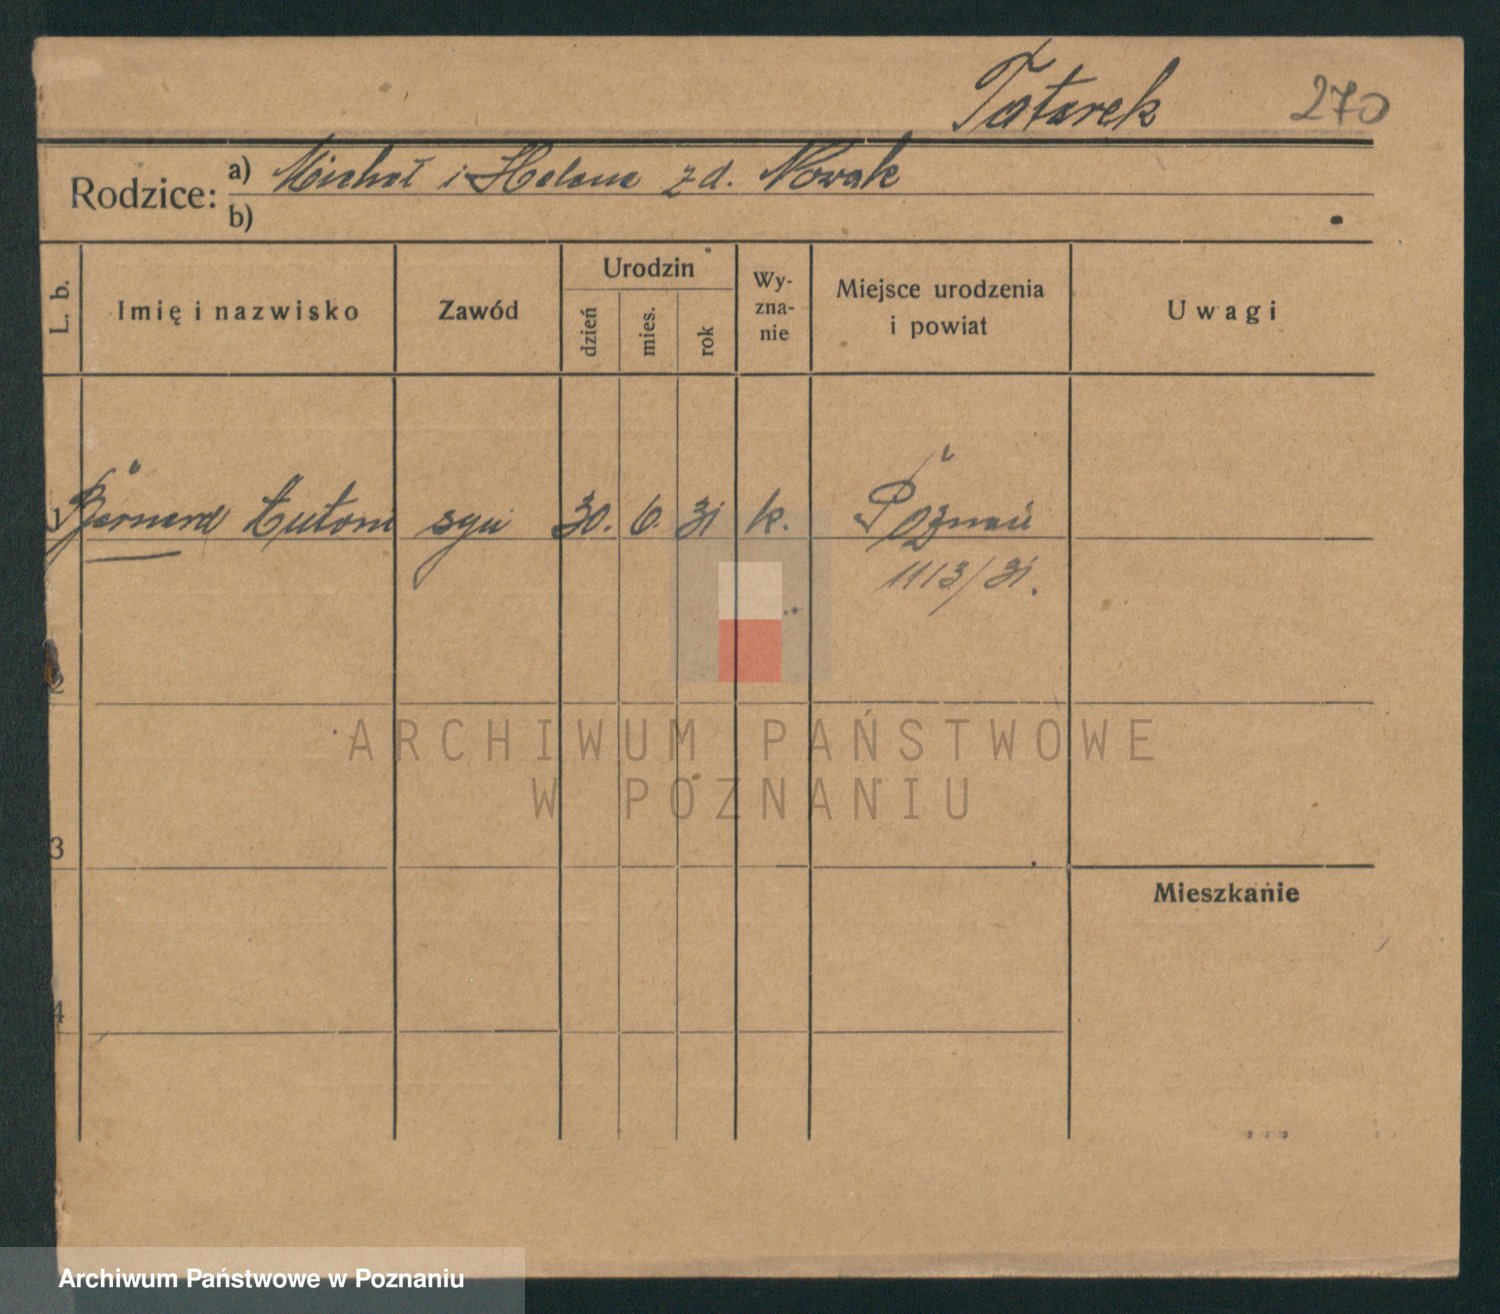 Tatarek 270
Rodzice: a) Michał i Helena z d. Nowak
b)
L. b.
Imię i nazwisko
Zawód
Urodzin
dzień
mies.
rok
Wy-
zna-
nie
Miejsce urodzenia
i powiat
Uwagi
1 Bernard Antoni syn 30. 6. 31 k. Poznań
1113/31.
2
3
4
Mieszkanie
ARCHIWUM PAŃSTWOWE
W POZNANIU
Archiwum Państwowe w Poznaniu